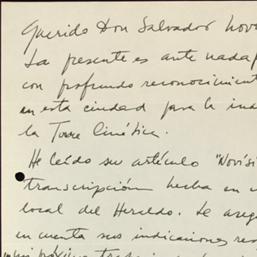 Querido Don Salvador Nov
La presente es ante nada p
con profundo reconocimient
en esta ciudad para la ina
la Torre Cinética.
He leído su artículo "Novísi
transcripción hecha en u
local del Heraldo. Le aseg
en cuenta sus indicaciones res